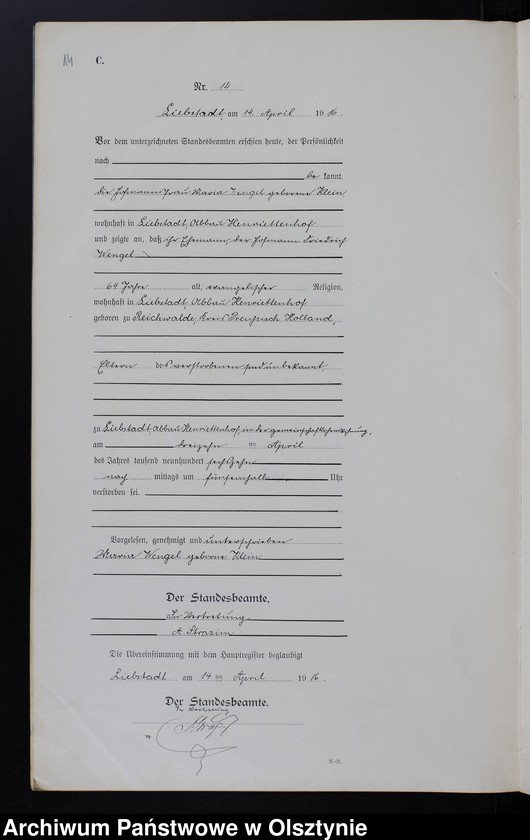 14
C.
Nr. 14
Liebstadt, am 14. April 1916.
Vor dem unterzeichneten Standesbeamten erschien heute, der Persönlichkeit
nach
be kannt,
die Hofmannsfrau Maria Wengel geborene Klein
wohnhaft in Liebstadt, Abbau Henriettenhof
und zeigte an, daß ihr Ehemann, der Hofmann Friedrich
Wengel
64 Jahre alt, evangelischer Religion,
wohnhaft in Liebstadt, Abbau Henriettenhof
geboren zu Reichwalde, Kreis Preußisch Holland,
Eltern des verstorbenen sind unbekannt,
zu Liebstadt, Abbau Henriettenhof, in der gemeinschaftlichen Wohnung,
am dreizehn ten April
des Jahres tausend neunhundert sechszehn
nach mittags um fünfeinhalb Uhr
verstorben sei.
Vorgelesen, genehmigt und unterschrieben
Maria Wengel geborne Klein
Der Standesbeamte.
In Vertretung
A. Strazim
Die Übereinstimmung mit dem Hauptregister beglaubigt
Liebstadt am 14 ten April 1916.
Der Standesbeamte.
In Vertretung
R.-R.
Archiwum Państwowe w Olsztynie